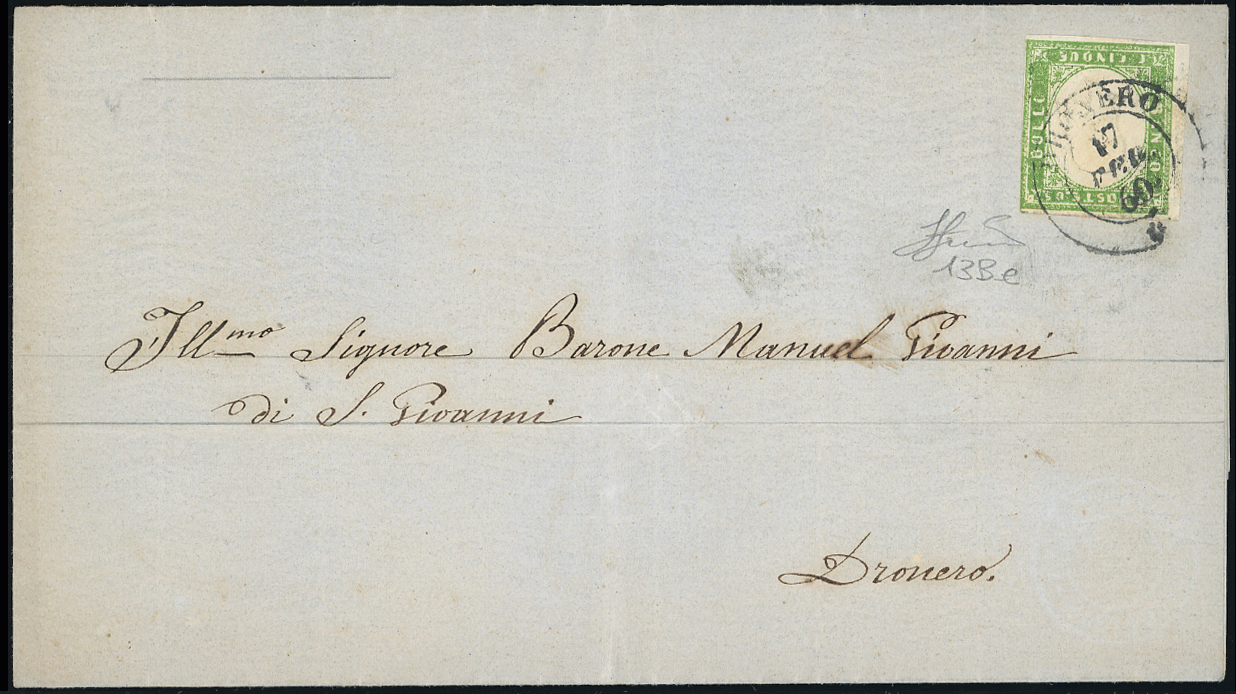 C. CINQUE
POSTE
DRONERO
17
FEB.
60.
13Be
Ill.mo Signore Barone Manuel Giovanni
di S. Giovanni
Dronero.